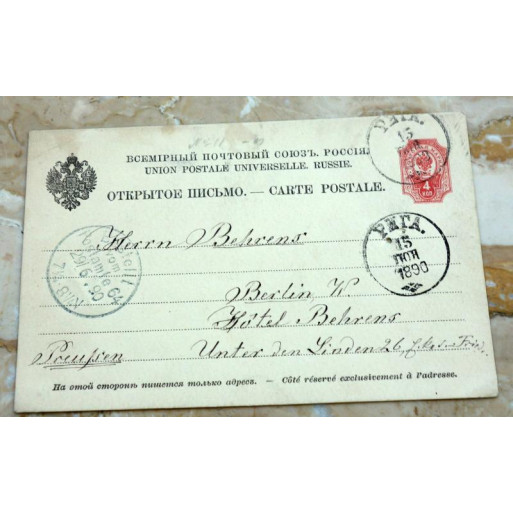 ВСЕМІРНЫЙ ПОЧТОВЫЙ СОЮЗЪ. РОССІЯ.
UNION POSTALE UNIVERSELLE. RUSSIE.
ОТКРЫТОЕ ПИСЬМО. — CARTE POSTALE.
РИГА.
15
4
КОП
РИГА.
15
ІЮН
1890
Herrn Behrens
Berlin W.
Hôtel Behrens
Preußen Unter den Linden 26,
На этой сторонѣ пишется только адресъ. — Côté réservé exclusivement à l'adresse.